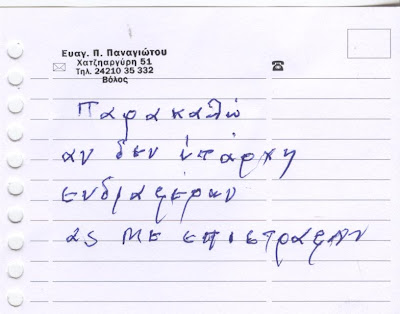 Ευαγ. Π. Παναγιώτου
Χατζηαργύρη 51
Τηλ. 24210 35 332
Βόλος
Παρακαλώ
αν δεν ὑπάρχη
ενδιαφέρων
ας με επιστραφουν